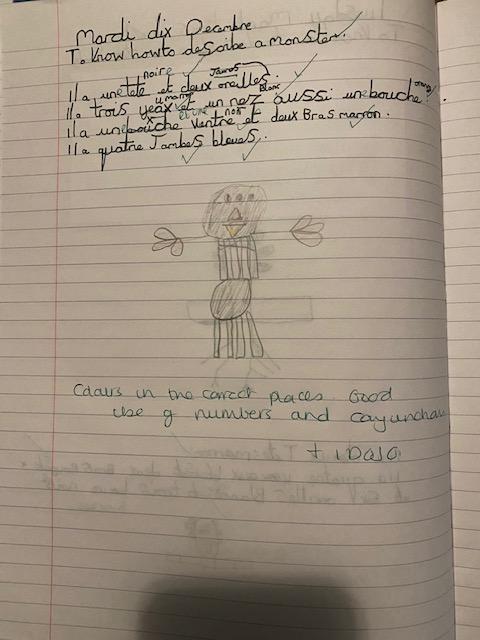 Mardi dix Decembre
To Know how to describe a monster.
noire Jaunes
Il a une tete et deux oreilles.
marron blanc orange
Il a trois yeux et un nez aussi une bouche.
et une noir
Il a un bouche ventre et deux Bras marron.
Il a quatre Jambes bleues.
Colours in the correct places. Good
use of numbers and conjunctions
+ 1 DoJo